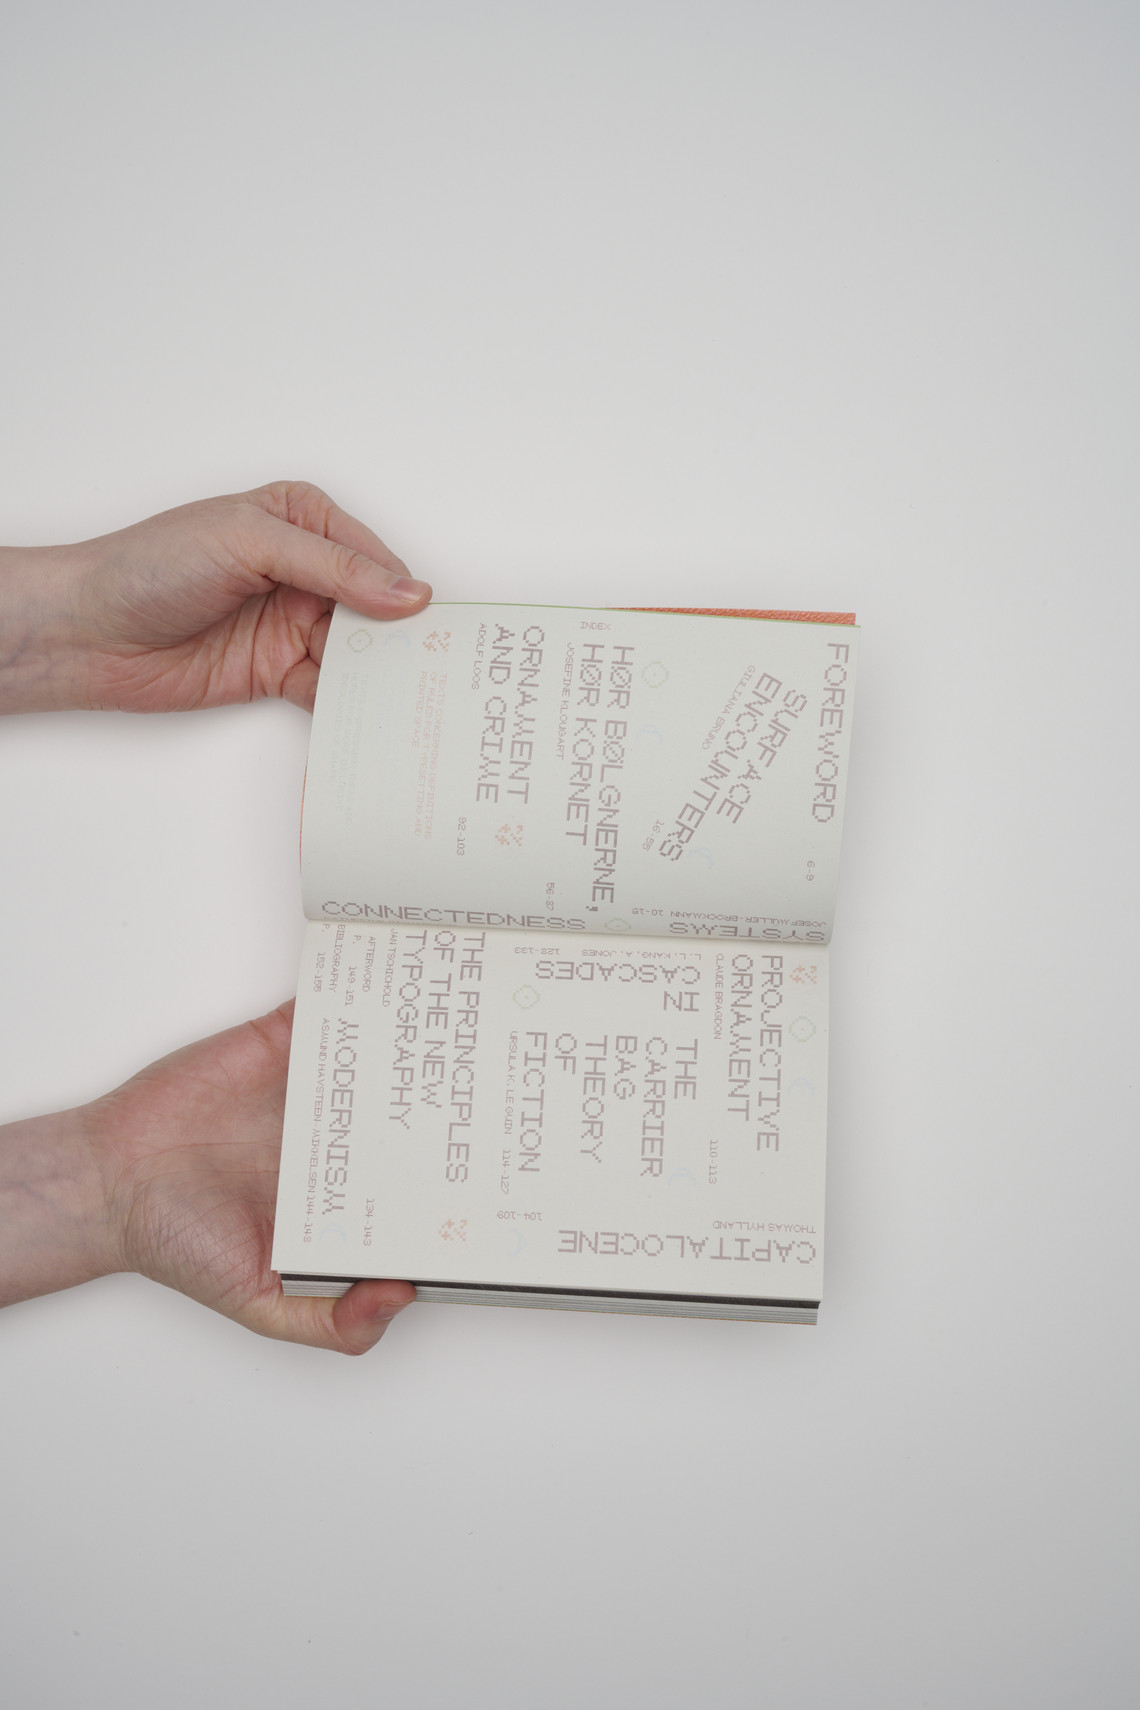 INDEX
FOREWORD
6-9
SYSTEMS
JOSEF MÜLLER-BROCKMANN 10-15
GIULIANA BRUNO
SURFACE
ENCOUNTERS
16-55
HØR BØLGNERNE,
HØR KORNET
JOSEFINE KLOUGART
56-87
CONNECTEDNESS
ORNAMENT
AND CRIME
ADOLF LOOS
92-103
TEXTS CONCERNING DEFINITIONS
OF RULES FOR TYPESETTING AND
PRINTED SPACE
CAPITALOCENE
THOMAS HYLLAND
104-109
PROJECTIVE
ORNAMENT
CLAUDE BRAGDON
110-113
THE
CARRIER
BAG
THEORY
OF
FICTION
URSULA K. LE GUIN 114-127
OH
CASCADES
L. L. KANG, A. JONES 128-133
THE PRINCIPLES
OF THE NEW
TYPOGRAPHY
JAN TSCHICHOLD
134-143
MODERNISM
ASMUND HAVSTEEN-MIKKELSEN 144-148
AFTERWORD
P. 149-151
BIBLIOGRAPHY
P. 152-155